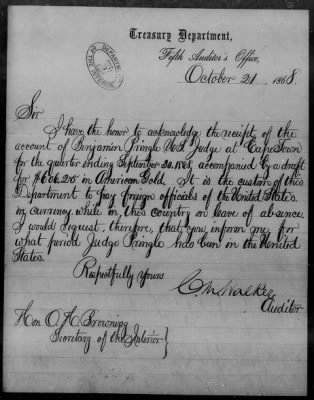 Treasury Department,
Fifth Auditor's Office,
October 21 1868.
Sir
I have the honor to acknowledge the receipt of the
account of Benjamin Pringle U.S. Judge at Cape Town
for the quarter ending September 30. 1868, accompanied by a draft
for $606.25 in American Gold. It is the custom of this
Department to pay foreign officials of the United States
in currency while in this country on leave of absence.
I would request, therefore, that you inform me for
what period Judge Pringle has been in the United
States.
Respectfully Yours
C. M. Walker
Auditor
Hon O. H. Browning
Secretary of the Interior.